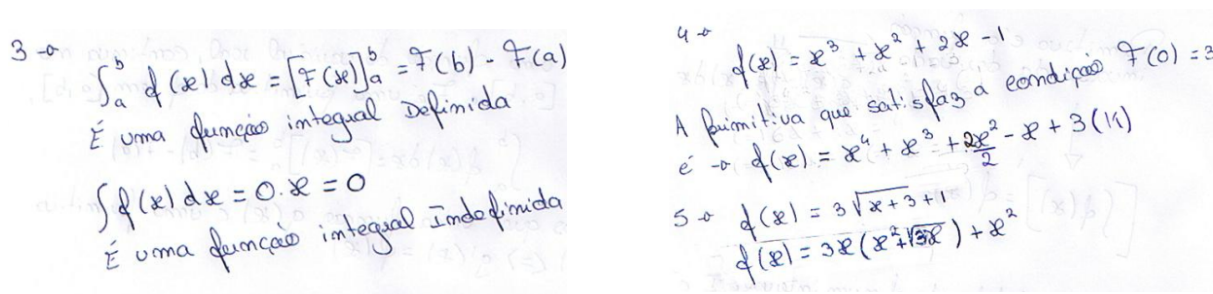 3 → ∫ₐᵇ f(x) dx = [F(x)]ₐᵇ = F(b) - F(a)
É uma função integral Definida
∫f(x) dx = 0.x = 0
É uma função integral Indefinida
4 →
f(x) = x³ + x² + 2x - 1
A primitiva que satisfaz a condição F(0) = 3
é → f(x) = x⁴ + x³ + 2x²/2 - x + 3 (K)
5 → f(x) = 3√x+3+1
f(x) = 3x (x²+√3x) + x²